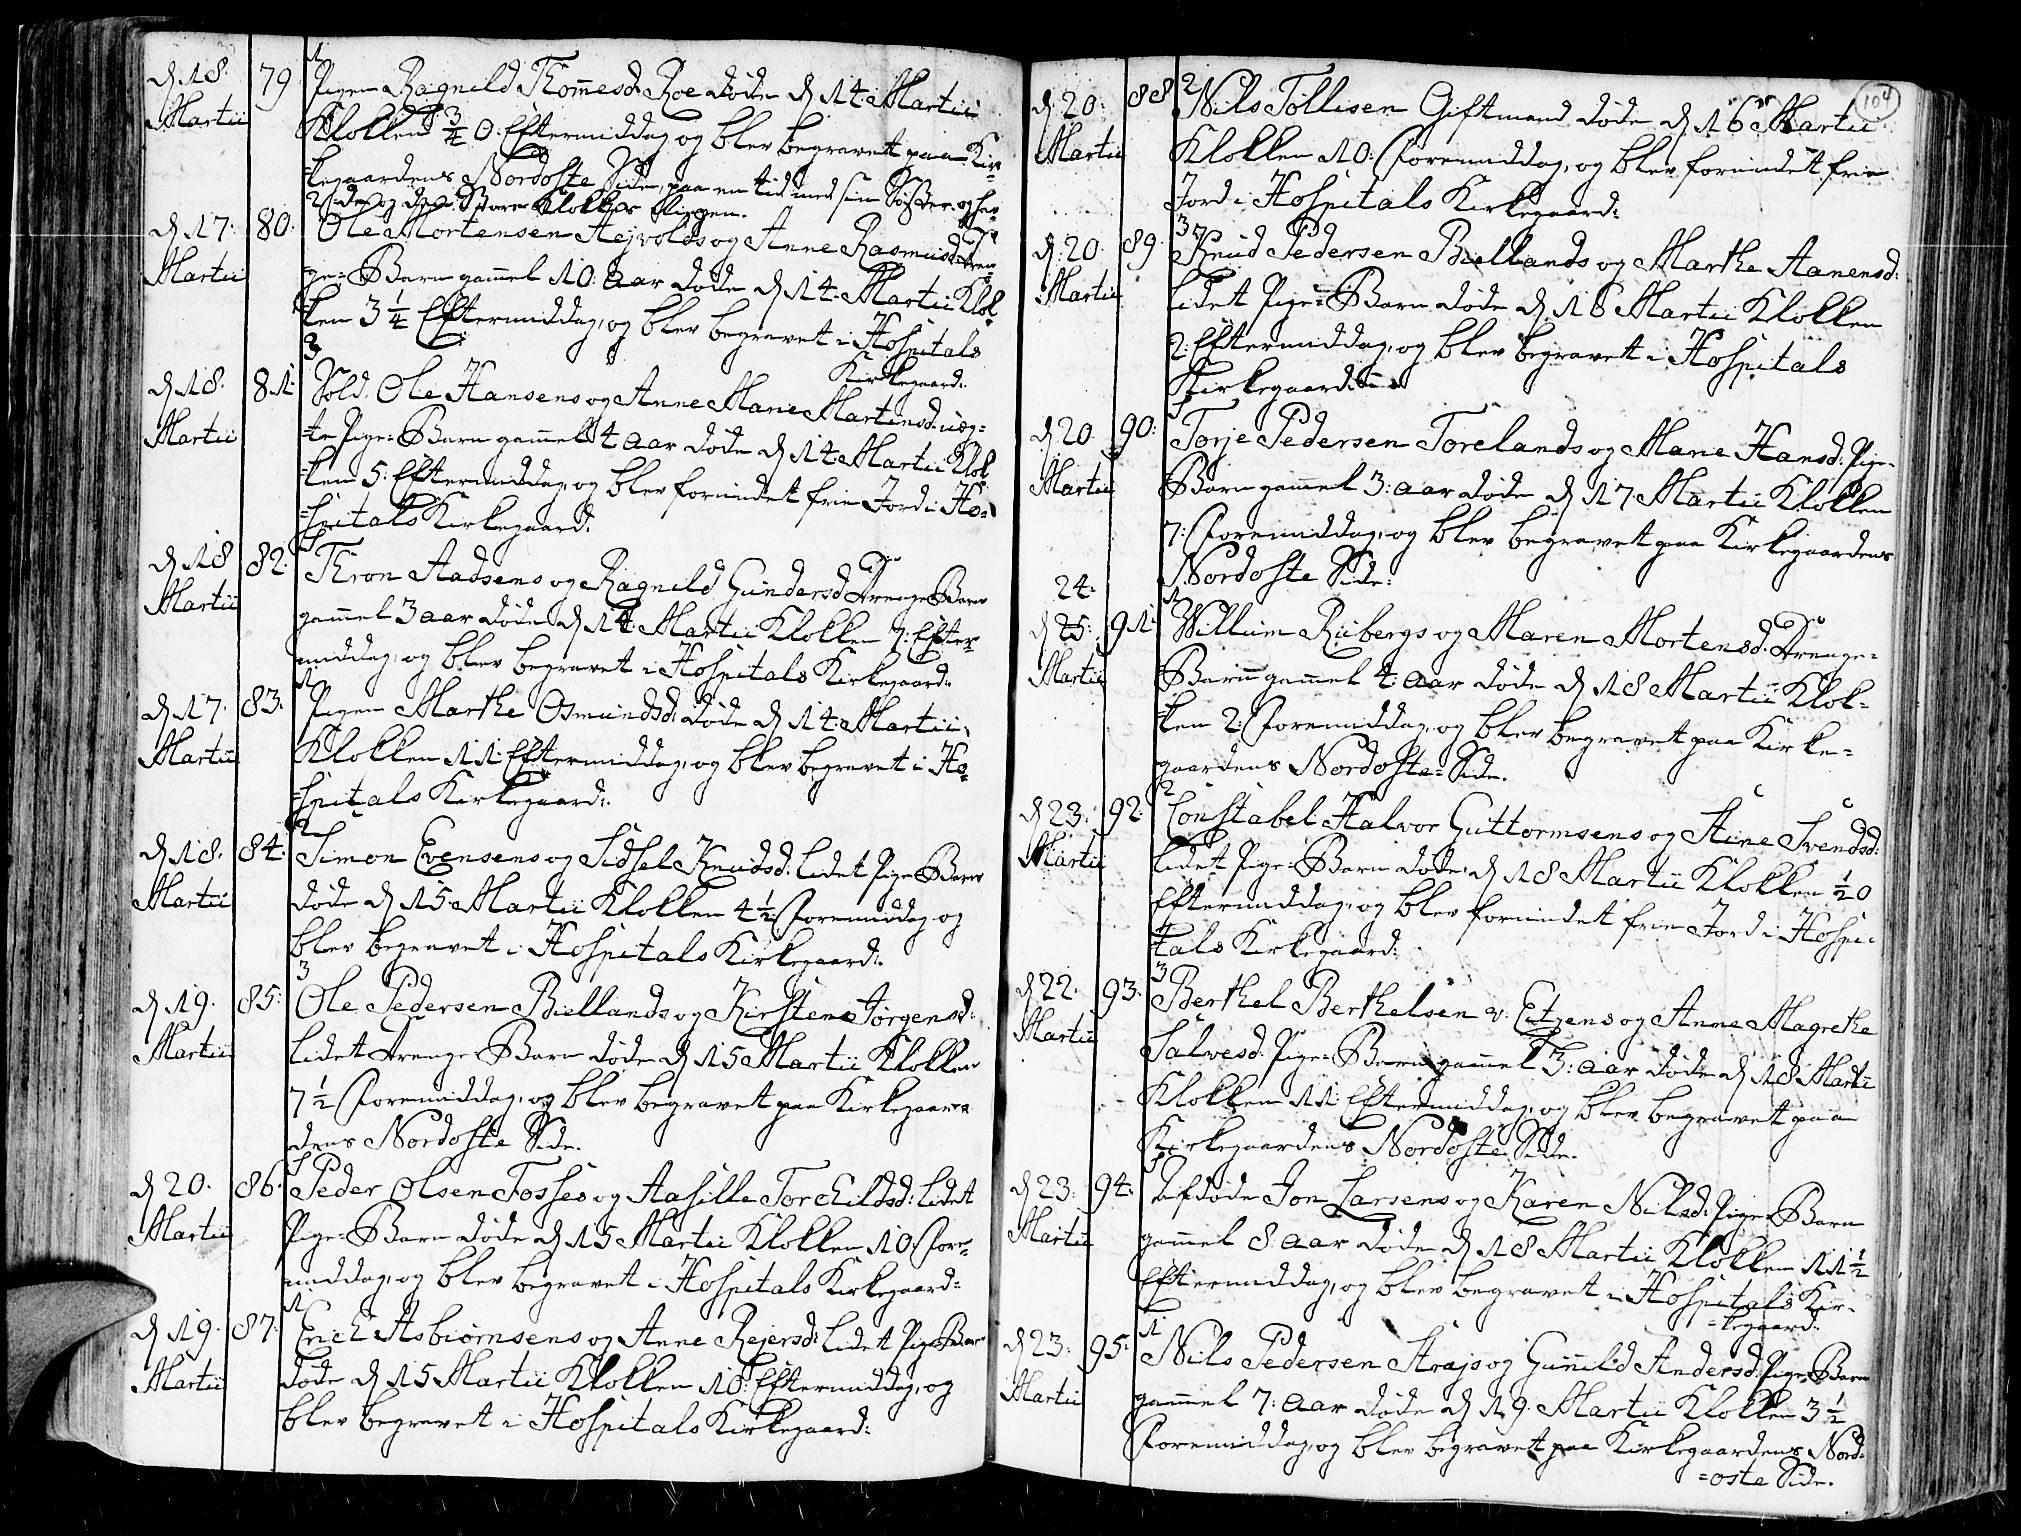 d 18. 79. 1
Martii Pigen Ragnild Thommesd. Roe døde d 14. Martii
Klokken 3/4 0. Eftermiddag og blev begravet paa Kir-
=kegaardens Nordoste Side, paa en tid med sin Søster
Klokkes
d 17. 80. Ole Mortensen Aejvolds og Anne Rasmusd.
Martii ge=Barn gammel 10: Aar døde d 14: Martii Klok-
ken 3 1/4 Eftermiddag, og blev begravet i Hospitals
Kirkegaard.
3
d 18. 81. Sold. Ole Hansens og Anne Marie Martinsd. uæg=
Martii =te Pige=Barn gammel 4 Aar døde d 14. Martii Klok-
=ken 5: Eftermiddag, og blev forundet frie Jord i Ho=
=spitals Kirkegaard.
d 18 82. Thron Aadsens og Ragnild Gundersd Drenge Barn
Martii gammel 3 aar døde d 14. Martii Klokken 7: Efter-
middag, og blev begravet i Hospitals Kirkegaard.
1
d 17. 83. Pigen Marthe Osmundsd. døde d 14. Martii
Martii Klokken 11. Eftermiddag, og blev begravet i Ho-
=spitals Kirkegaard.
2
d 18. 84. Simon Evensens og Sidsel Knudsd. lidet Pige Barn
Martii døde d 15 Martii Klokken 4 1/2 Foremiddag og
blev begravet i Hospitals Kirkegaard.
3
d 19. 85. Ole Pedersen Biellands og Kirsten Jørgensd:
Martii lidet Drenge Barn døde d 15 Martii Klokken
7 1/2 Foremiddag, og blev begravet paa Kirkegaar=
dens Nordoste Side.
d 20. 86. Peder Olsen Fosses og Aasille Torckildsd: lidet
Martii Pige=Barn døde d 15 Martii Klokken 10. Fore-
middag, og blev begravet i Hospitals Kirkegaard=
1
d 19. 87. Erich Asbiørnsens og Anne Rejersd: lidet Pige Barn
Martii døde d 15 Martii Klokken 10: Eftermiddag, og
blev begravet i Hospitals Kirkegaard:
104
2
d. 20: 88 Nils Tollisen Giftmand døde d 16 Martii
Martii Klokken 10: Foremiddag, og blev forundet frie
Jord i Hospitals Kirkegaard:
3
d. 20. 89. Knud Pedersen Biellands og Marthe Aanensd:
Martii lidet Pige=Barn døde d 16 Martii Klokken
2: Eftermiddag, og blev begravet i Hospitals
Kirkegaard.
d 20. 90. Torje Pedersen Torelands og Marie Hansd. Pige-
Martii Barn gammel 3: aar døde d 17 Martii Klokken
7: Foremiddag, og blev begravet paa Kirkegaardens
Nordoste Side:
24. 1
d 25: 91. Willum Riibergs og Maren Mortensd. Drenge=
Martii Barn gammel 4: aar døde d 18 Martii Klok=
=ken 2: Foremiddag, og blev begravet paa Kirke=
gaardens Nordoste=Side.
2
d 23. 92. Constabel Halvor Guttormsens og Stine Svendsd:
Martii lidet Pige=Barn døde d 18 Martii Klokken 1/2 0
Eftermiddag, og blev forundet frie Jord i Hospi-
tals Kirkegaard.
3
d 22. 93. Berthel Berthelsen v. Eitzens og Anne Magrethe
Martii Salvesd. Pige=Barn gammel 3: aar døde d 18 Martii
Klokken 11: Eftermiddag, og blev begravet paa
Kirkegaardens Nordoste Side.
d 23. 94. Afdøde Jon Larsens og Karen Nilsd. Pige=Barn
Martii gammel 8 aar døde d 18 Martii Klokken 11 1/2
Eftermiddag, og blev begravet i Hospitals Kir-
=kegaard.
1
d 23. 95. Nils Pedersen Strajs og Gunnild Andersd. Pige Barn
Martii gammel 7: aar døde d 19. Martii Klokken 3 1/2
Foremiddag, og blev begravet paa Kirkegaardens Nord-
=oste Side.